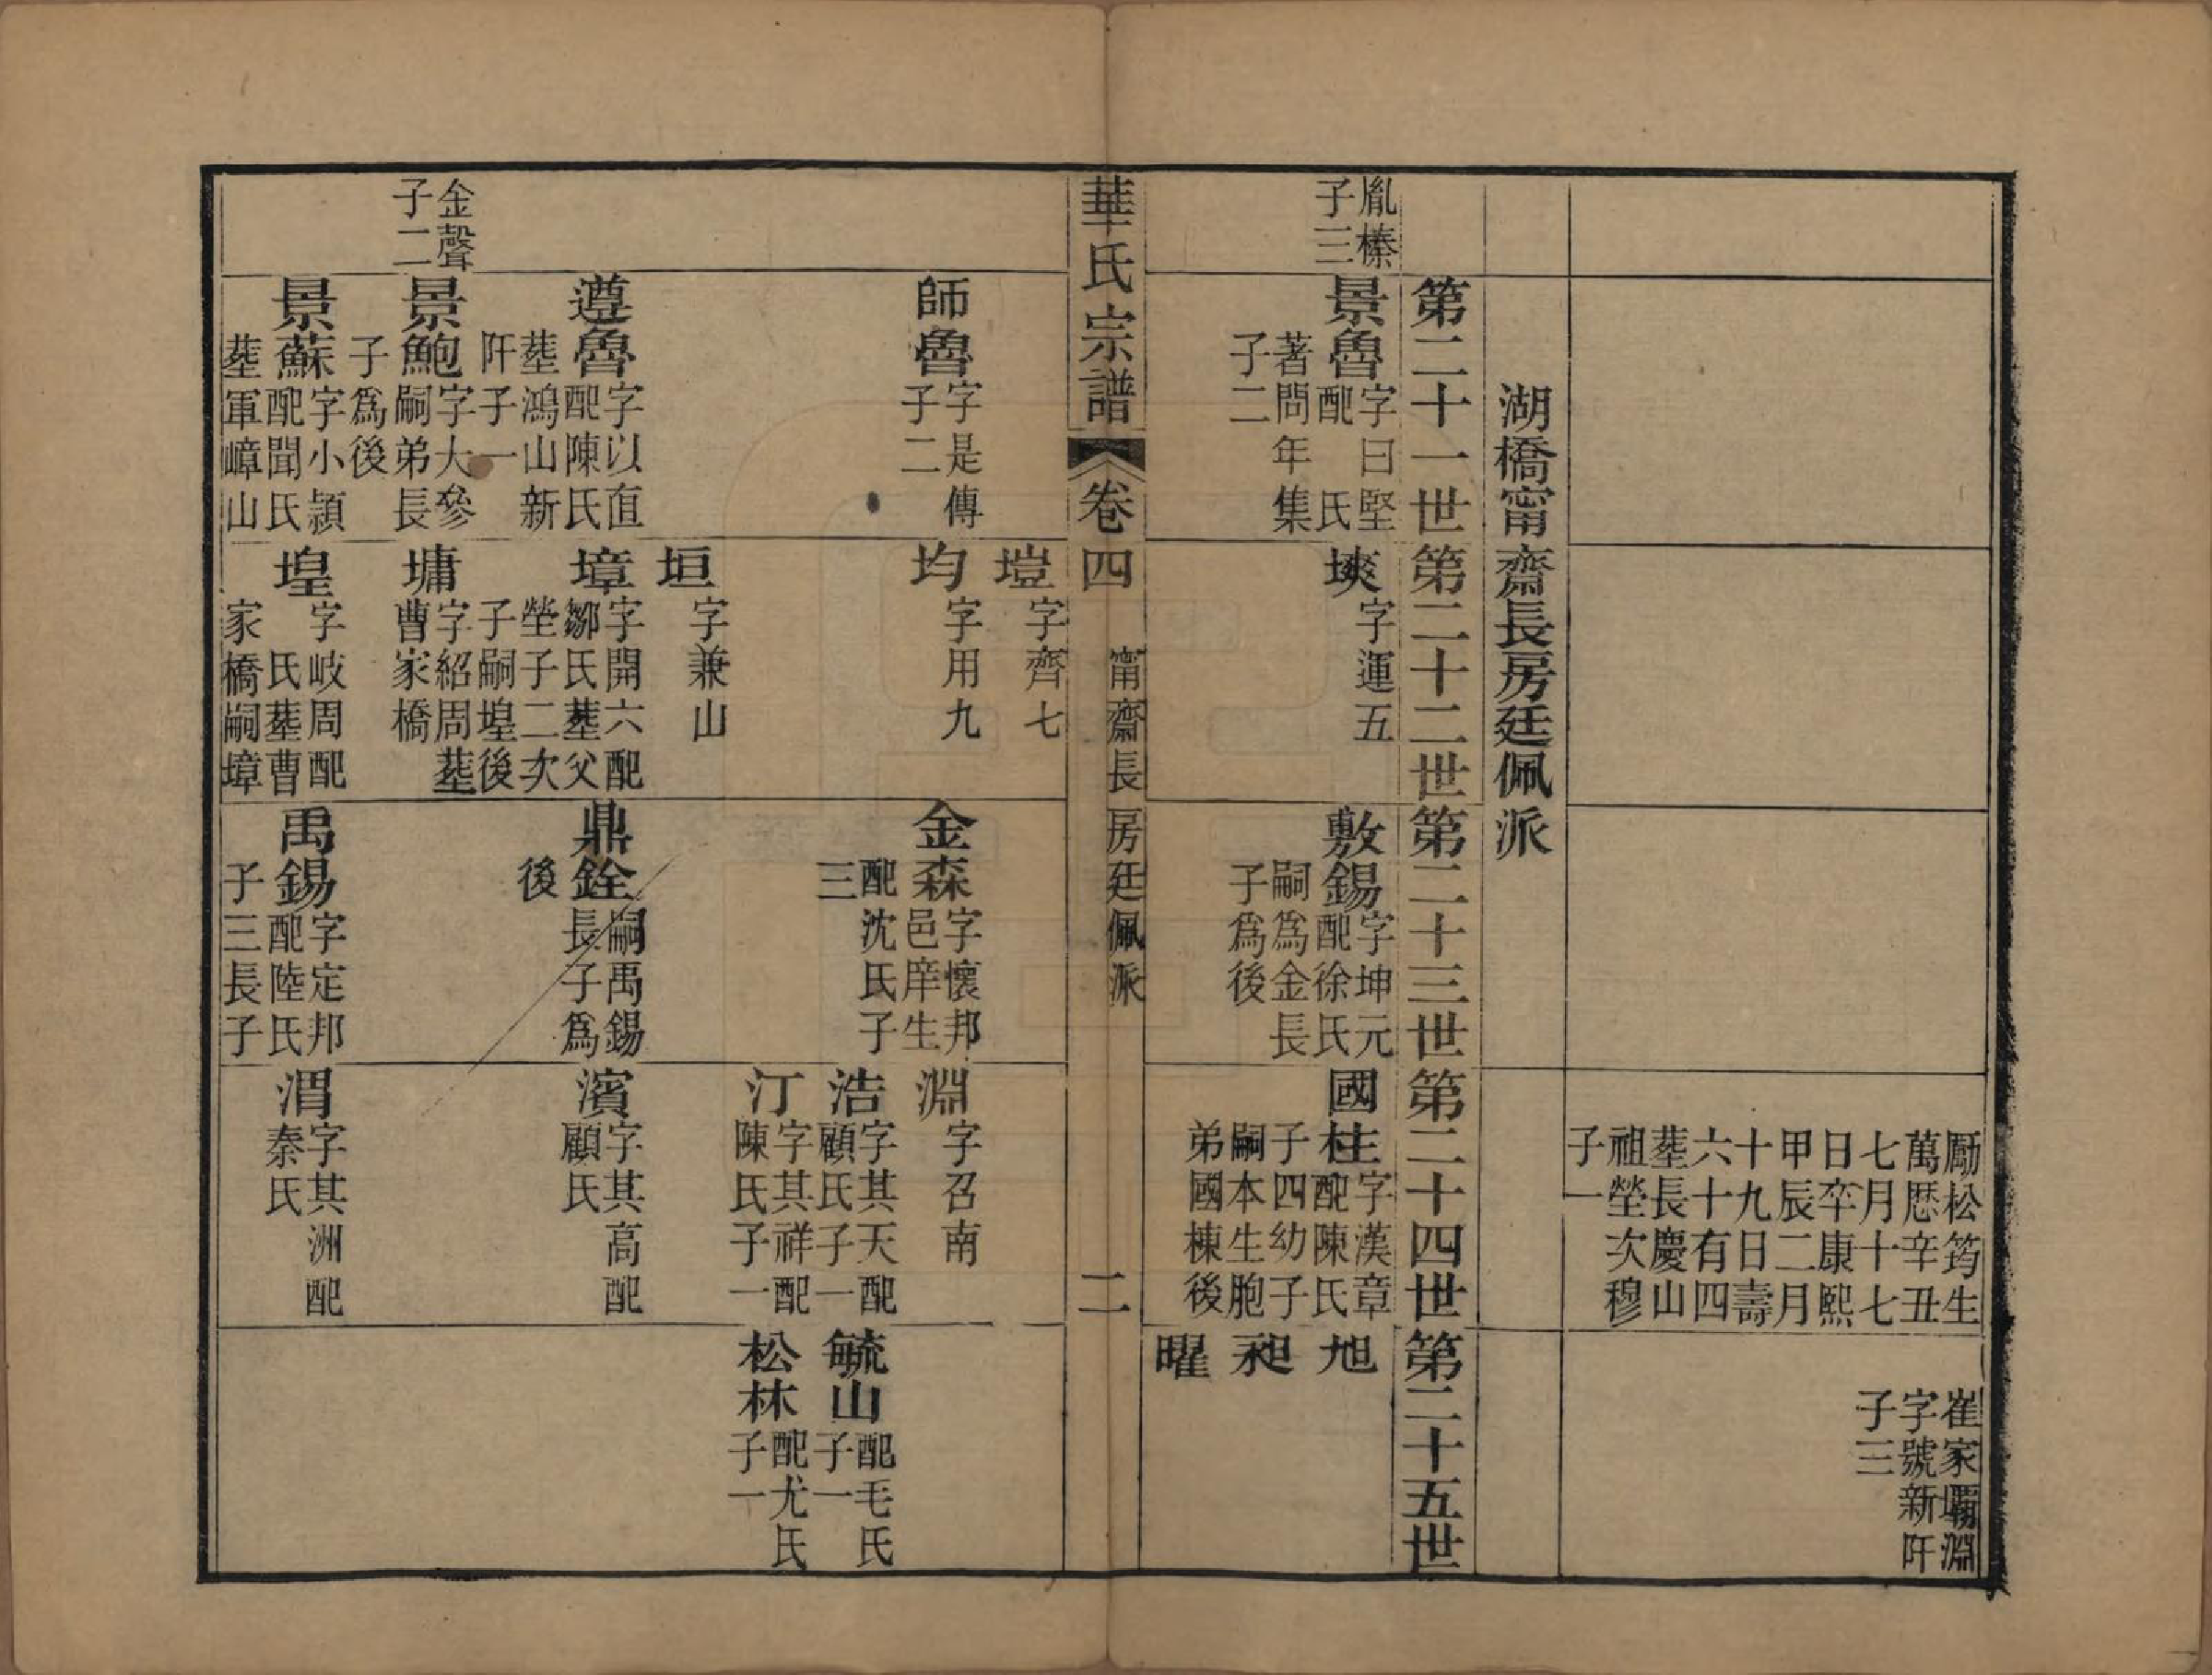 勵松筠生
萬厯辛丑
七月十七
日卒康熙
甲辰二月
十九日壽
六十有四
葬長慶山
祖塋次穆
子一
崔家壩淵
字號新阡
子三
湖橋甯齋長房廷佩派
第二十一世
第二十二世
第二十三世
第二十四世
第二十五世
胤榛
子三
景魯
字曰堅
配　氏
著問年集
子二
塽
字運五
敷錫
字坤元
配徐氏
嗣為金長
子為後
國柱
字漢章
配陳氏
子四幼子
嗣本生胞
弟國棟後
旭
昶
曜
華氏宗譜
卷四
甯齋長房廷佩派
二
塏
字齊七
師魯
字是傳
子二
均
字用九
金森
字懷邦
邑庠生
配沈氏子
三
淵
字召南
浩
字其天配
顧氏子一
毓山
配毛氏
子一
汀
字其祥配
陳氏子一
松林
配尤氏
子一
垣
字兼山
遵魯
字以直
配陳氏
葬鴻山新
阡子一
墇
字開六配
鄒氏葬父
塋子二次
子嗣堭後
鼎銓
嗣禹錫
長子為
後
濱
字其高配
顧氏
金聲
子二
景鮑
字大參
嗣弟長
子為後
墉
字紹周葬
曹家橋
景蘇
字小潁
配聞氏
葬軍嶂山
堭
字岐周配
　氏葬曹
家橋嗣墇
禹錫
字定邦
配陸氏
子三長子
渭
字其洲配
秦氏